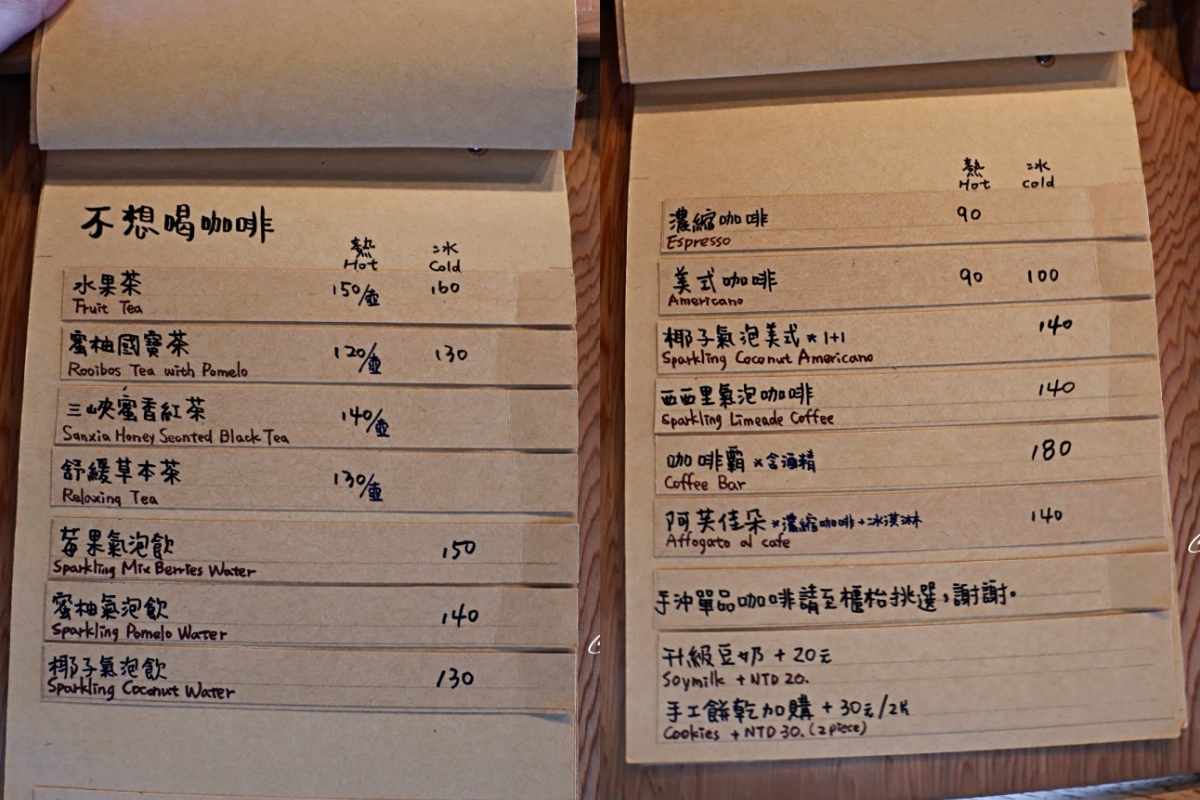 不想喝咖啡
熱 冰
Hot Cold
水果茶 150/壺 160
Fruit Tea
蜜柚國寶茶 120/壺 130
Rooibos Tea with Pomelo
三峽蜜香紅茶 140/壺
Sanxia Honey Seonted Black Tea
舒緩草本茶 130/壺
Relaxing Tea
莓果氣泡飲 150
Sparkling Mix Berries Water
蜜柚氣泡飲 140
Sparkling Pomelo Water
椰子氣泡飲 130
Sparkling Coconut Water
熱 冰
Hot Cold
濃縮咖啡 90
Espresso
美式咖啡 90 100
Americano
椰子氣泡美式*1+1 140
Sparkling Coconut Americano
西西里氣泡咖啡 140
Sparkling Limeade Coffee
咖啡霸*含酒精 180
Coffee Bar
阿芙佳朵*濃縮咖啡+冰淇淋 140
Affogato al cafe
手沖單品咖啡請至櫃枱挑選,謝謝。
升級豆奶+20元
Soymilk +NTD 20.
手工餅乾加購+30元/2片
Cookies +NTD 30. (2piece)